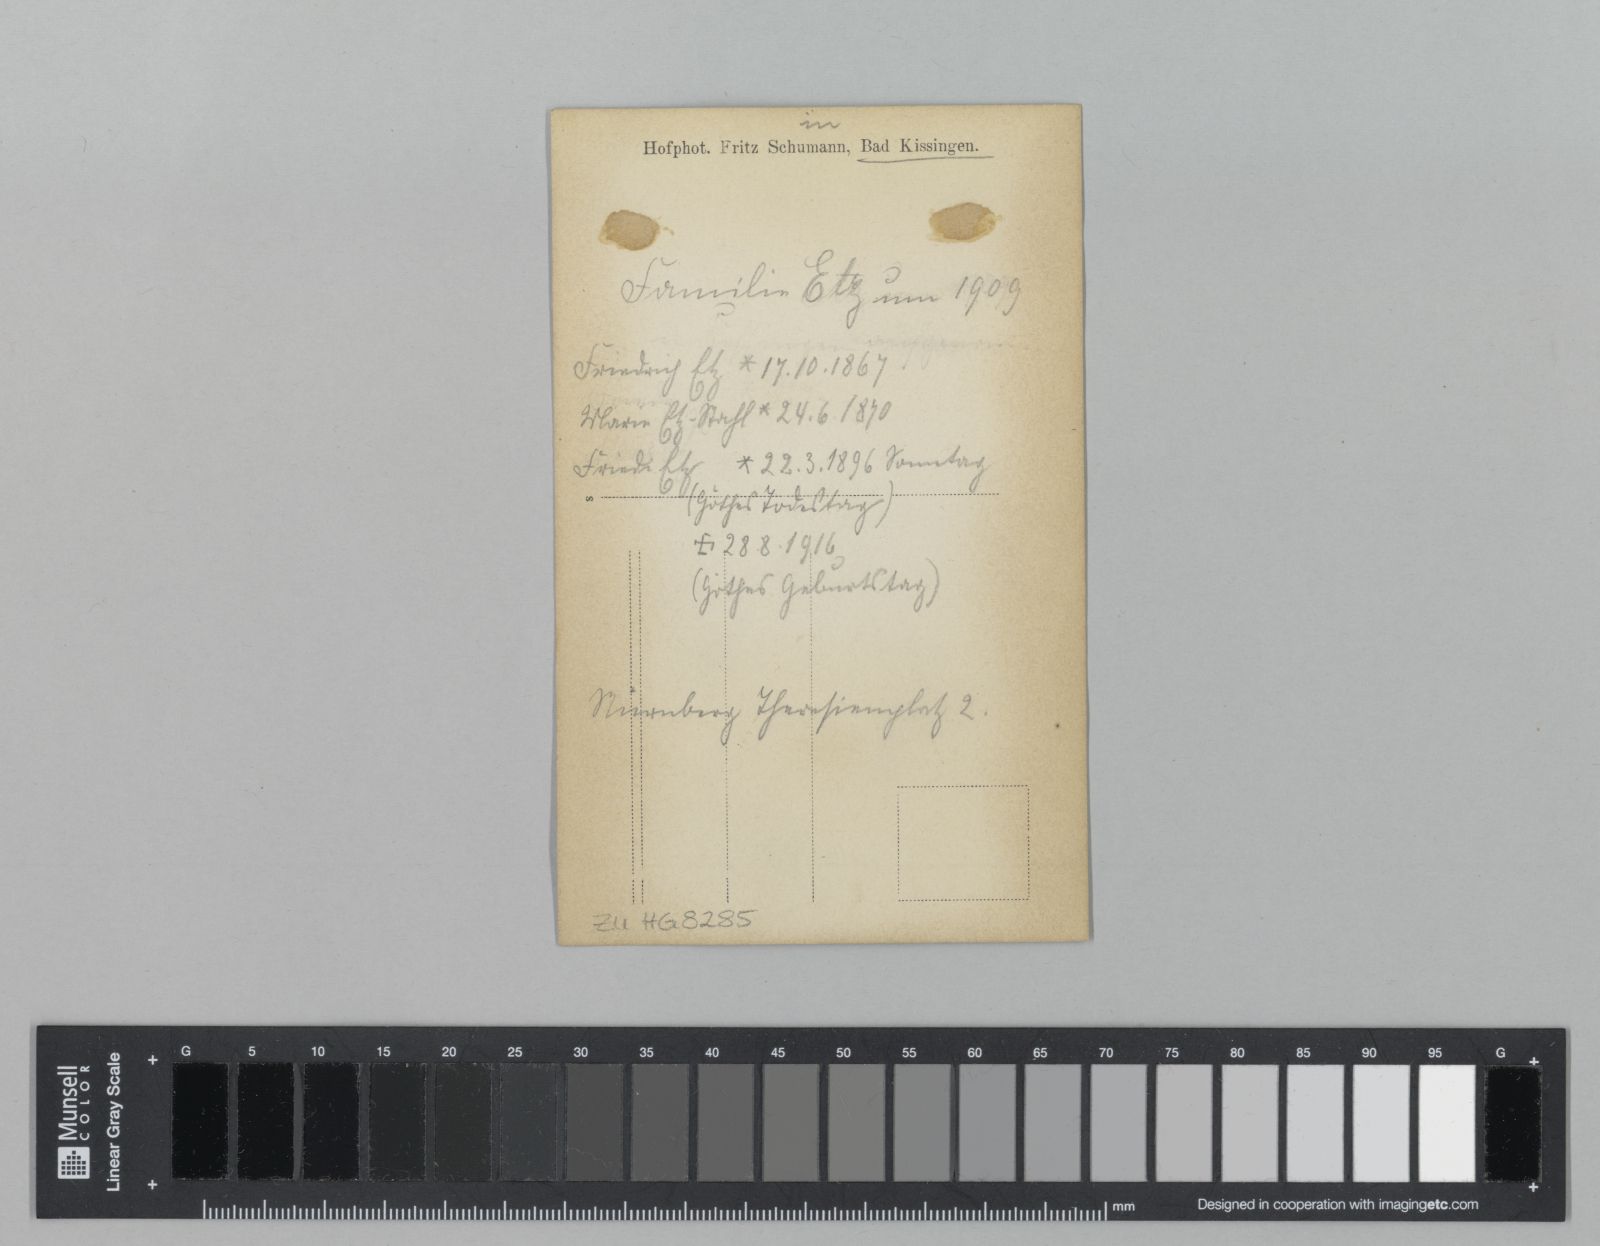 in
Hofphot. Fritz Schumann, Bad Kissingen.
Familie Etz um 1909
Friedrich Etz * 17.10.1867
Marie Etz-Stahl * 24.6.1870
Frieda Etz * 22.3.1896 Sonntag
(Göthes Todestag)
28.8.1916
(Göthes Geburtstag)
Nürnberg Theresienplatz 2.
zu HG8285
Munsell
COLOR
Linear Gray Scale
G 5 10 15 20 25 30 35 40 45 50 55 60 65 70 75 80 85 90 95 G
mm
Designed in cooperation with imagingetc.com